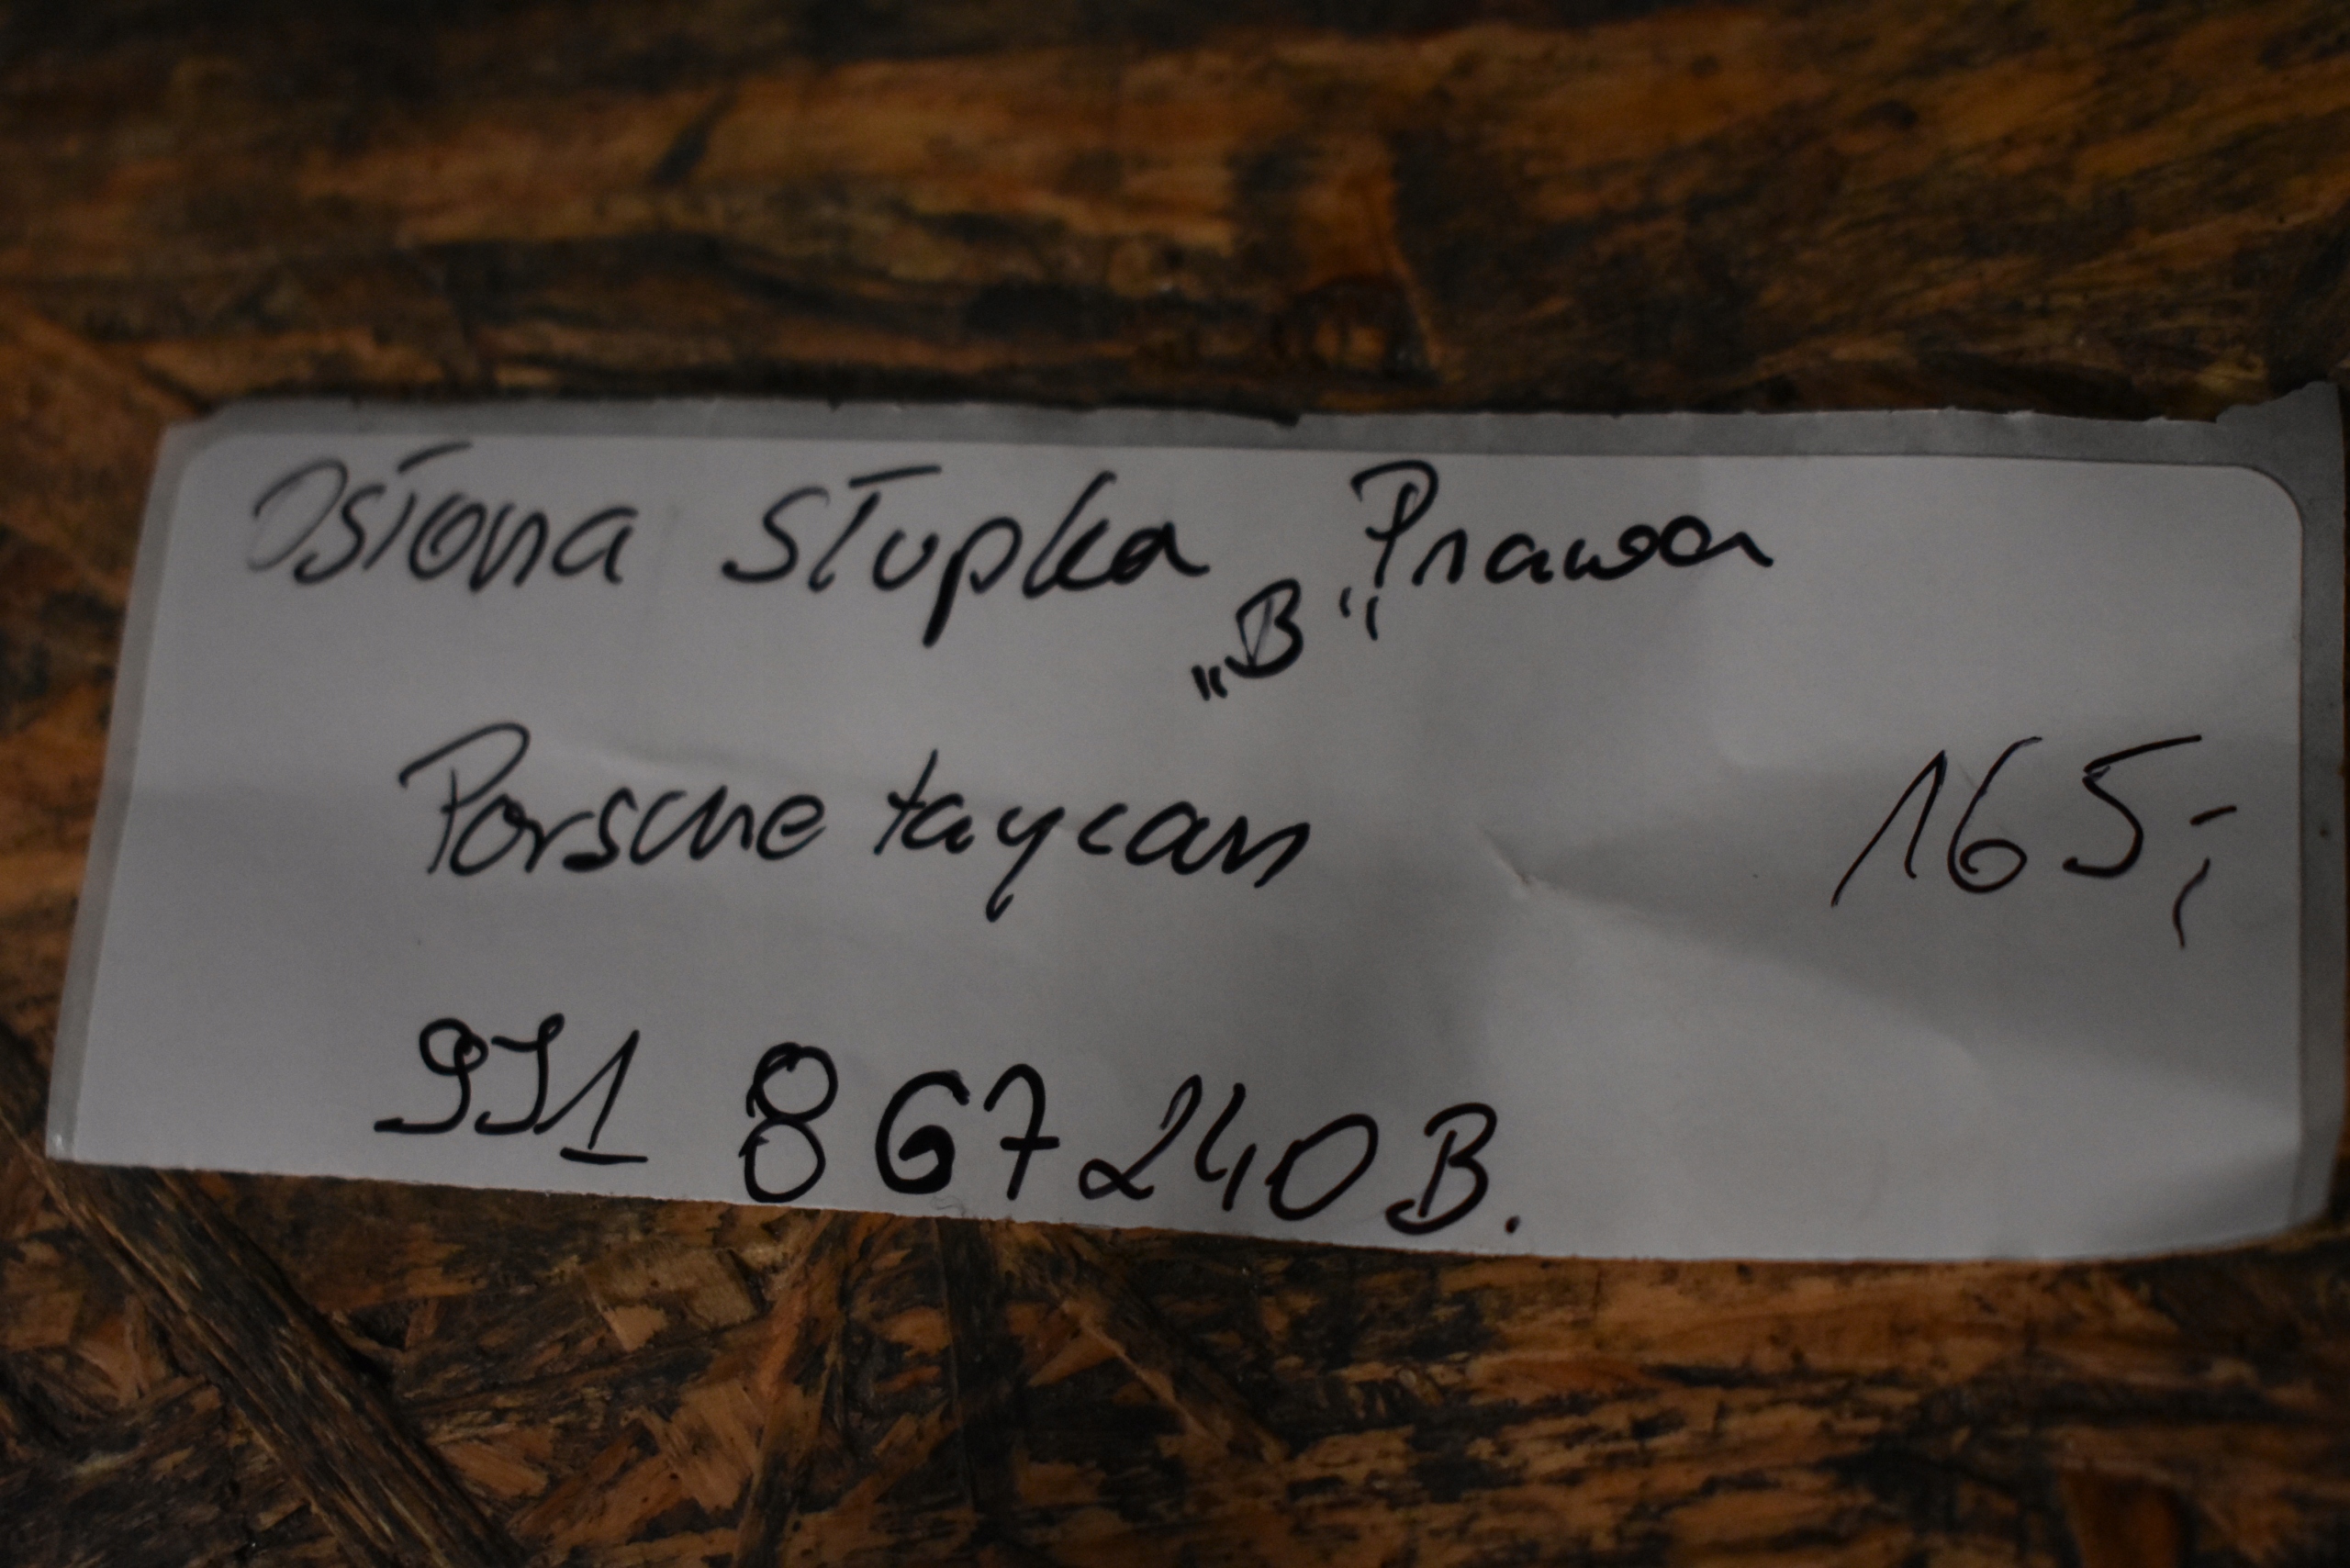 Osłona słupka „B" Prawa
Porsche taycan 165,-
9J1 867240B.